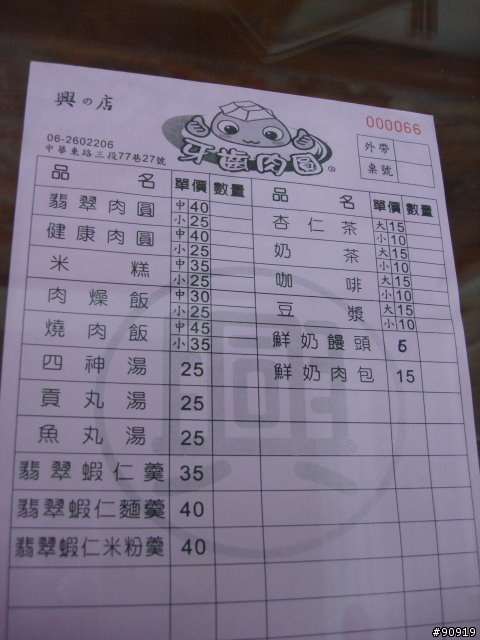 興の店
000066
牙齒肉圓
®
06-2602206
中華東路三段77巷27號
外帶
桌號
品名 單價 數量
翡翠肉圓 中 40
小 25
健康肉圓 中 40
小 25
米糕 中 35
小 25
肉燥飯 中 30
小 25
燒肉飯 中 45
小 35
四神湯 25
貢丸湯 25
魚丸湯 25
翡翠蝦仁羹 35
翡翠蝦仁麵羹 40
翡翠蝦仁米粉羹 40
品名 單價 數量
杏仁茶 大 15
小 10
奶茶 大 15
小 10
咖啡 大 15
小 10
豆漿 大 15
小 10
鮮奶饅頭 6
鮮奶肉包 15
#90919